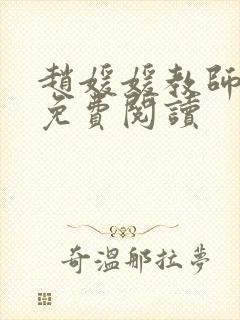 趙媛媛教師
免費閱讀
奇溫那拉夢